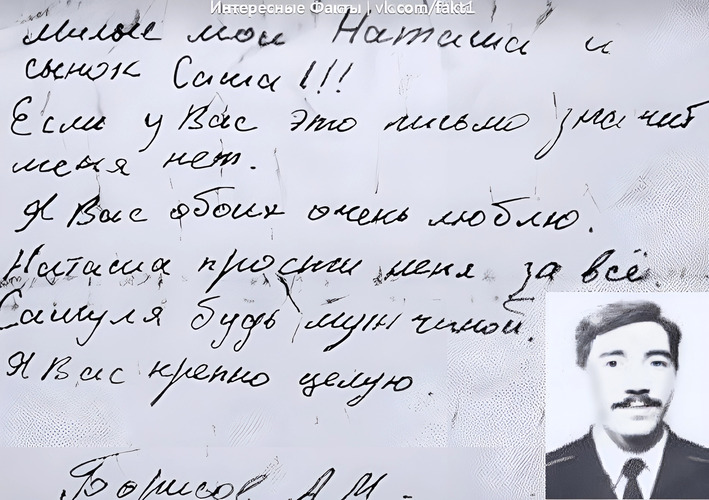 Интересные Факты | vk.com/fakt1
Милые мои Наташа и
сынок Саша!!!
Если у Вас это письмо значит
меня нет.
Я Вас обоих очень люблю.
Наташа прости меня за всё.
Сашуля будь мужчиной.
Я Вас крепко целую.
Борисов А.М.